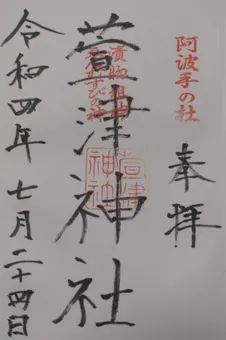 阿波手の社
奉拝
漬物祖神
縁むすびの神
萱津神社
萱津神社
令和四年 七月二十四日